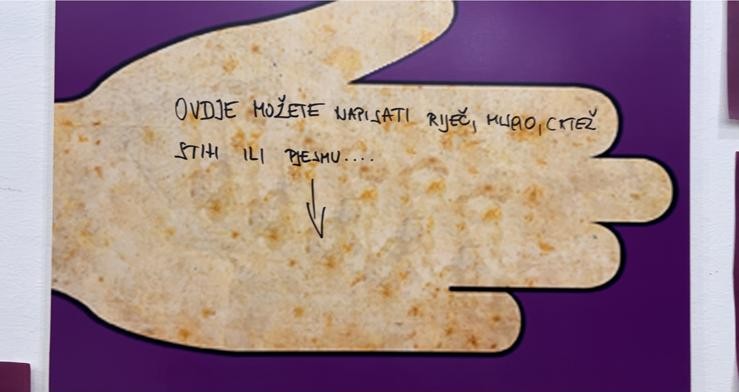 OVDJE MOŽETE NAPISATI RIJEČ, MISAO, CRTEŽ
STIH ILI PJESMU....